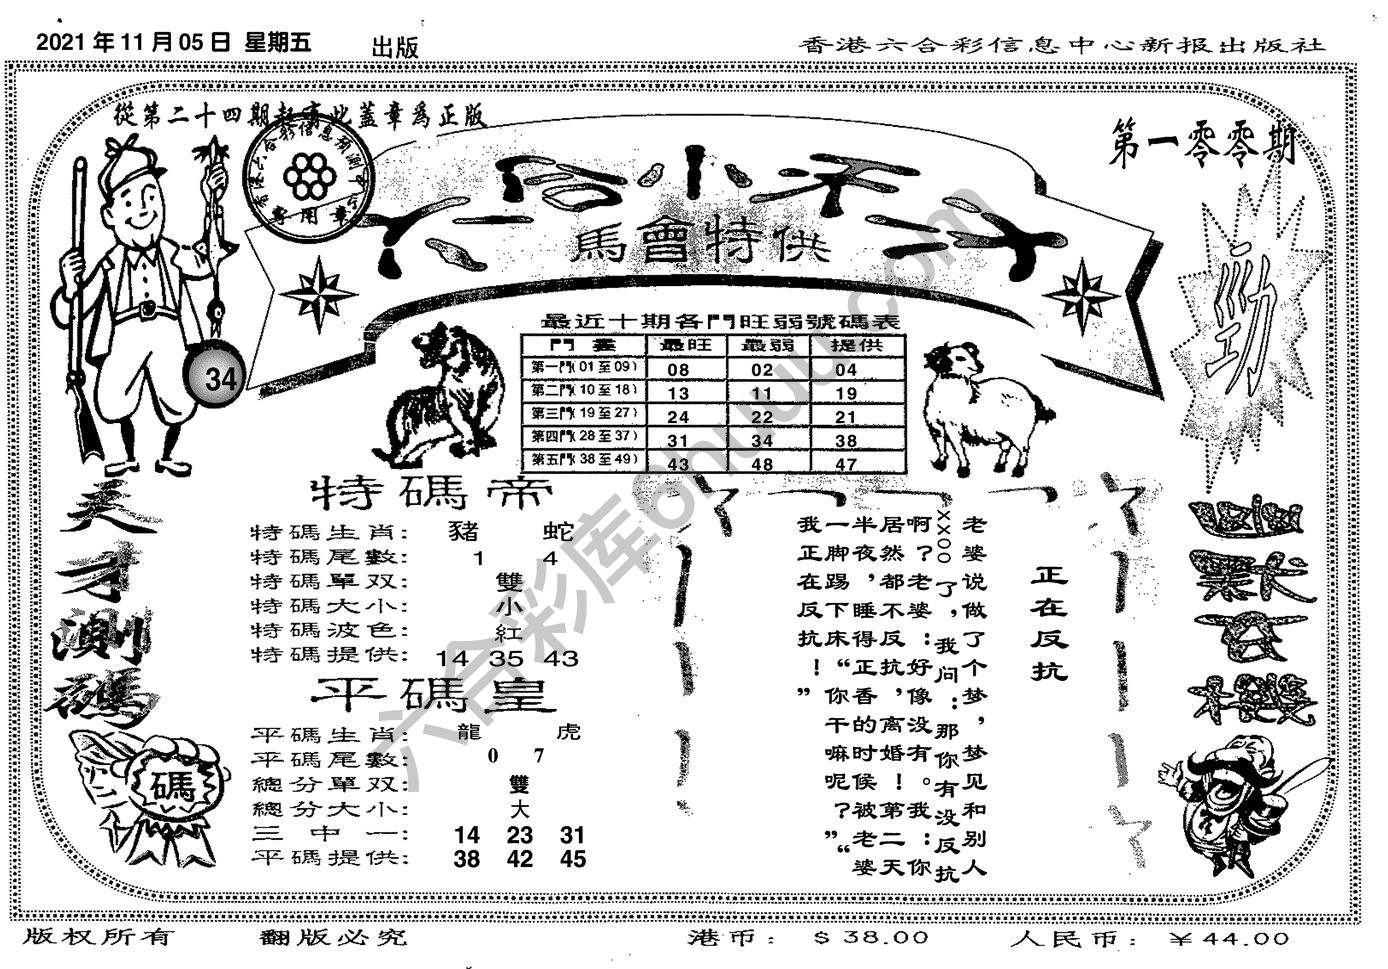 2021 年 11 月 05 日 星期五 出版
香港六合彩信息中心新报出版社
從第二十四期起蓋此蓋章爲正版
第一零零期
馬會特供
勁
34
最近十期各門旺弱號碼表
門 最旺 最弱 提供
第一門(01 至 09) 08 02 04
第二門(10 至 18) 13 11 19
第三門(19 至 27) 24 22 21
第四門(28 至 37) 31 34 38
第五門(38 至 49) 43 48 47
天才測碼
碼
特碼帝
特碼生肖: 豬 蛇
特碼尾數: 1 4
特碼單双: 雙
特碼大小: 小
特碼波色: 紅
特碼提供: 14 35 43
平碼皇
平碼生肖: 龍 虎
平碼尾數: 0 7
總分單双: 雙
總分大小: 大
三中一: 14 23 31
平碼提供: 38 42 45
正在反抗
老婆说做了个梦,梦见和别人
XXOO了,我问:那你有没反抗
啊?老婆:好像没有。我:你
居然都不反抗,离婚!第二天
半夜,睡得正香的时候被老婆
一脚踢下床“你干嘛呢?”“
我正在反抗!”
六合彩库6huuu.com
版权所有 翻版必究 港币: $ 38.00 人民币: ¥ 44.00